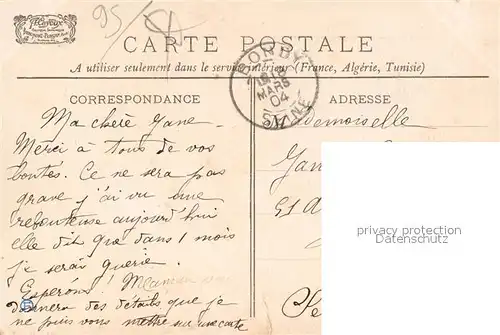 95/
CARTE POSTALE
A utiliser seulement dans le service intérieur (France, Algérie, Tunisie)
BONDY
MARS
04
SEINE
CORRESPONDANCE
Ma chère Jane -
Merci à tous de vos
bontés. Ce ne sera pas
grave j'ai vu une
rebouteuse aujourd'hui
elle dit que dans 1 mois
je serai guérie.
Espérons! Maman vous
donnera des détails que je
ne puis vous mettre sur une carte
ADRESSE
Mademoiselle
Privater
Datenschutz